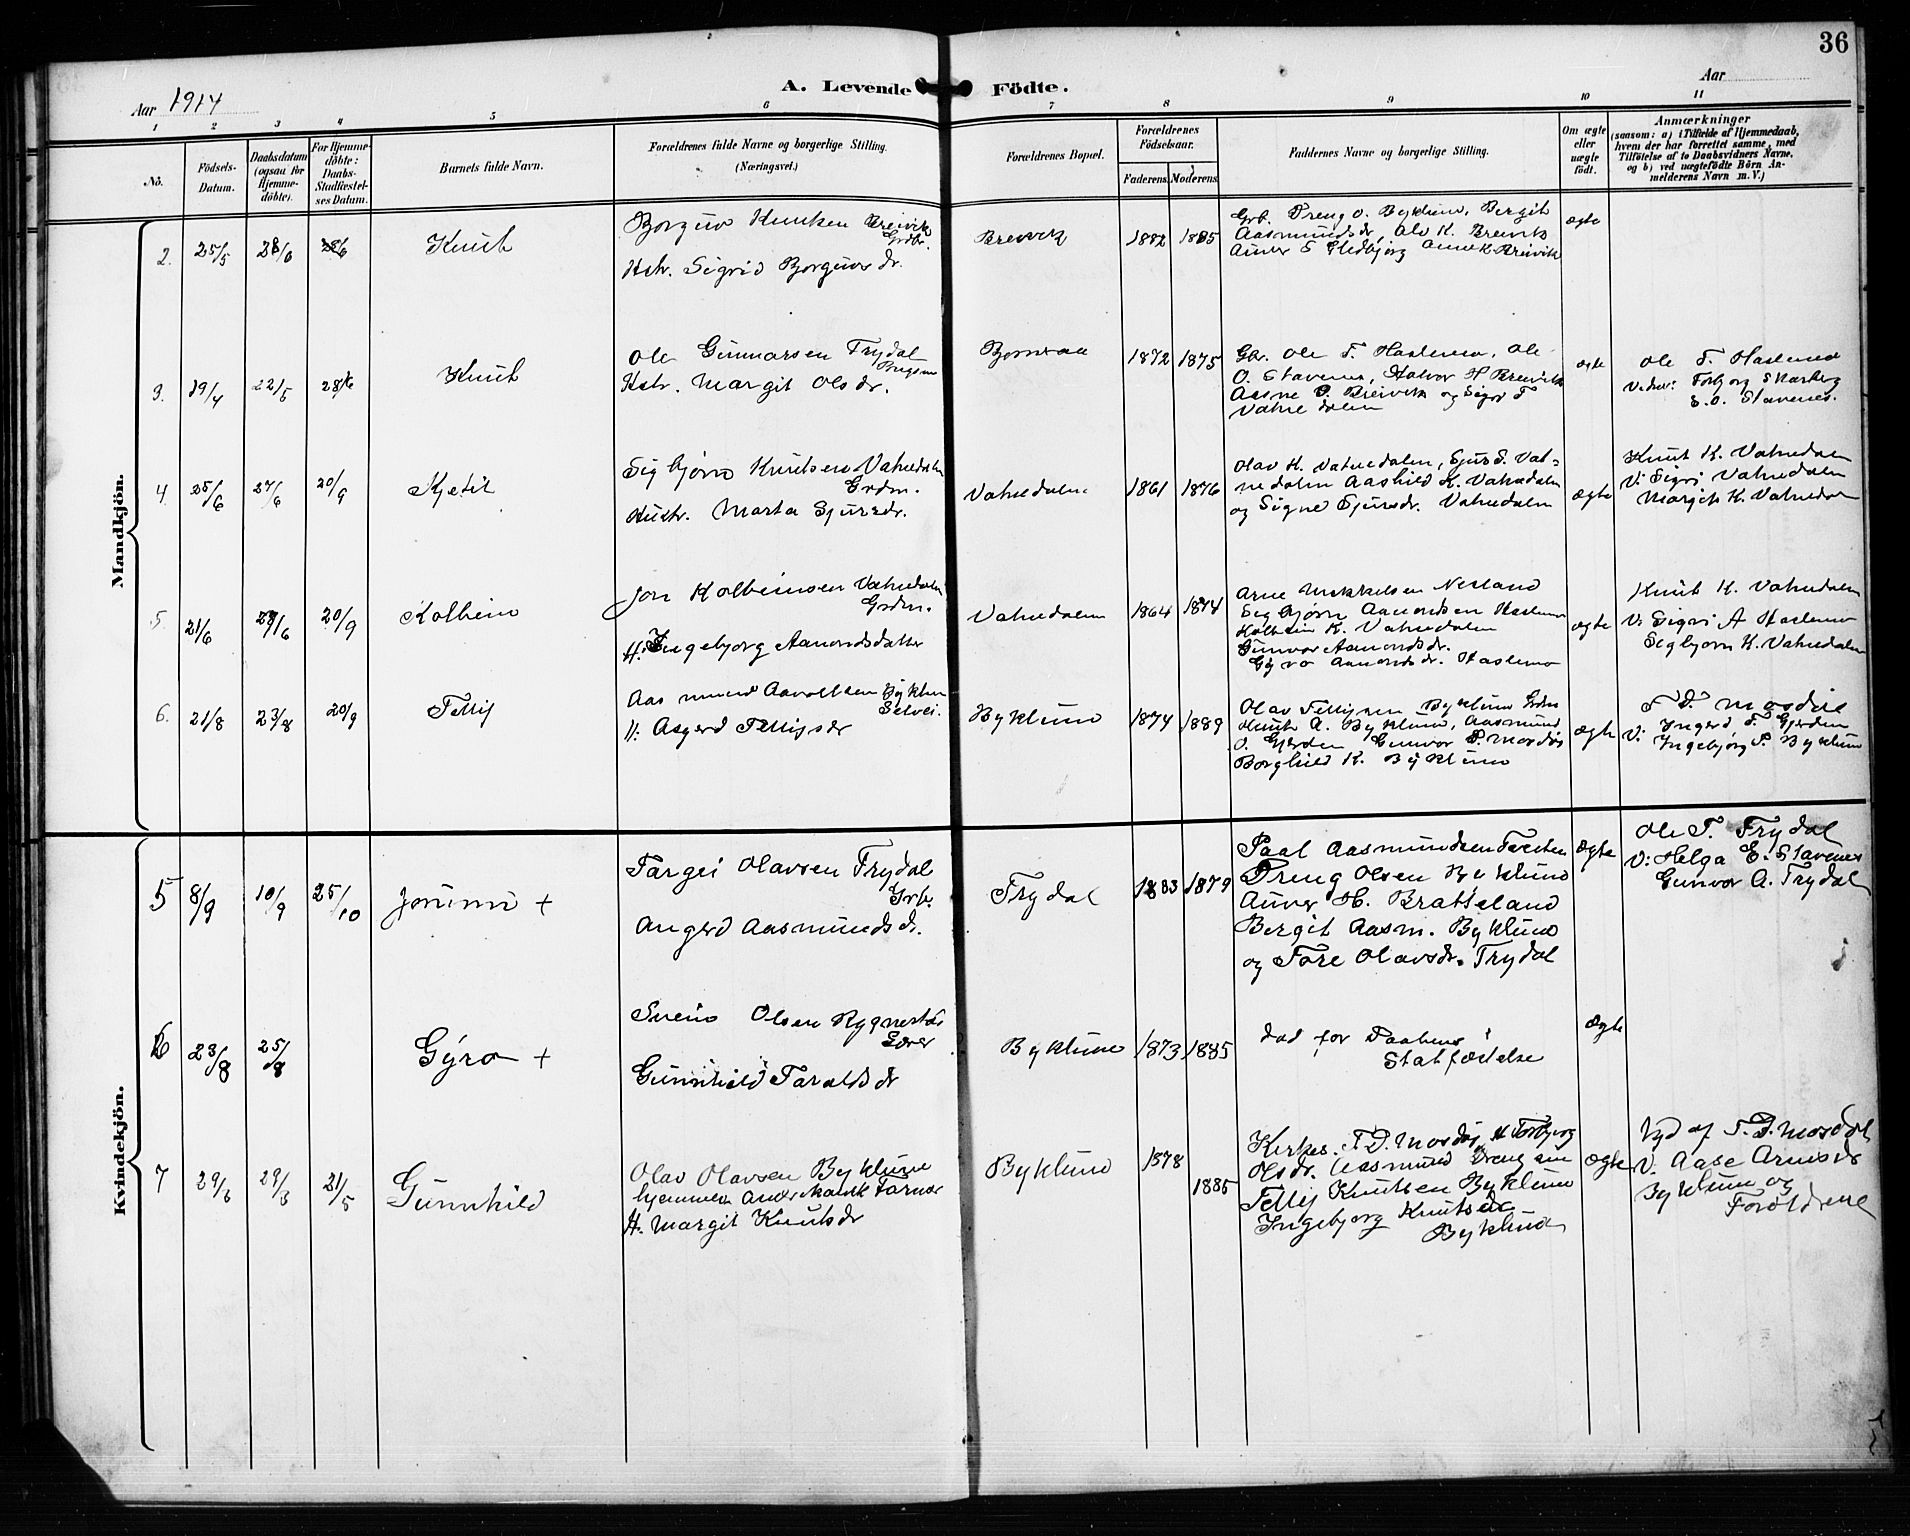 36
Aar 1914
A. Levende Födte.
Aar
1 2 3 4 5 6 7 8 9 10 11
No.
Födsels-Datum.
Daabsdatum (ogsaa for Hjemme-döbte).
For Hjemme-döbte: Daabs-Stadfæstel-ses Datum.
Barnets fulde Navn.
Forældrenes fulde Navne og borgerlige Stilling.
(Næringsvei.)
Forældrenes Bopæl.
Forældrenes Födselsaar.
Faderens. Moderens.
Faddernes Navne og borgerlige Stilling.
Om ægte eller uægte födt.
Anmærkninger
(saasom: a) i Tilfælde af Hjemmedaab,
hvem der har forrettet samme, med
Tilföielse af to Daabsvidners Navne,
og b) ved uægtefödte Börn An-
melderens Navn m. V.)
Mandkjön.
2. 25/5 28/6 Knut
Borguv Knutsen Breivik
Grdbr.
Hstr. Sigrid Borguvs dr.
Breivik 1882 1885
Grb. Dreng O. Byklum, Bergit
Aasmundsdr, Alv K. Breivik
Anver S Gledbjørg Anne K Breivik
ægte
3. 19/4 22/5 28/6 Knut
Ole Gunnarsen Trydal
Hstr. Margit Olsdr.
Bjørnraa 1872 1875
Gbr. Ole T. Haslemo, Ole
O. Stavenes, Halvor H Breivik
Aasne P. Breivik og Sigrid T
Vatnedalen
ægte
Ole T. Haslemo
Vidner: Torbjørg Skarberg
E. O. Stavenes.
4. 25/6 27/6 20/9 Kjetil
Sigbjørn Knutsen Vatnedalen
Grdm.
Hustr. Marta Sjursdr.
Vatnedalen 1861 1876
Olav K. Vatnedalen, Sjur S. Vat-
nedalen Aashild K. Vatnedalen
og Signe Sjursdr. Vatnedalen
ægte
Knut K. Vatnedalen
V: Sigri Vatnedalen
Margit K. Vatnedalen
5. 21/6 28/6 20/9 Kolbein
Jon Kolbeinsen Vatnedalen
Grdm.
H: Ingebjørg Aamondsdatter
Vatnedalen 1864 1874
Arne Mikkelsen Nesland
Sigbjørn Aamondsen Haslemo
Kolbein K. Vatnedalen
Gunvor Aamondsdr.
Gyro Aamondsdr. Haslemo
ægte
Knut K. Vatnedalen
V: Sigri A Haslemo
Sigbjørn K. Vatnedalen
6. 21/8 23/8 20/9 Tellif
Aasmund Aavoldsen Byklum
Selvei.
H: Asgerd Tellifsdr
Byklum 1874 1889
Olav Tellifsen Byklum Grdm
Knut A. Byklum, Aasmund
O. Gjerden Gunvor D. Mosdøl
Borghild K. Byklum
ægte
T D Mosdøl
V: Ingerd T. Gjerden
Ingebjørg T. Byklum
Kvindekjön.
5 8/9 10/9 25/10 Jorunn +
Targei Olavsen Trydal
Grb.
Angerd Aasmundsdr.
Trydal 1883 1879
Paal Aasmundsen Tveiten
Dreng Olsen Byklum
Anver H. Bratteland
Bergit Aasm. Byklum
og Tore Olavsdr. Trydal
ægte
Ole T. Trydal
V: Helga E. Stavenes
Gunvor A. Trydal
6 23/8 25/8 Gyro +
Svein Olsen Rygnestad
Gunnhild Taraldsdr
Byklum 1873 1885
død før Daabens
Statfæstelse
Ægte
7 29/3 29/3 21/5 Gunnhild
Olav Olavsen Byklum
hjemmeh Ander
H. Margit Knutsdr
Byklum 1878 1885
Kirkes. T D. Mosdøl, H Torbjørg
Olsdr. Aasmund Drengsen
Tellif Knutsen Byklum
Ingebjørg Knutsdr
Byklum
Ægte
Vgd af T. D. Mosdøl
V. Aase Arnesdr
Byklum og
Forældrene